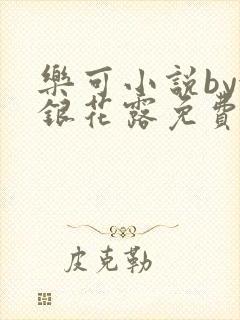 樂可小説by
銀花露免費
皮克勒